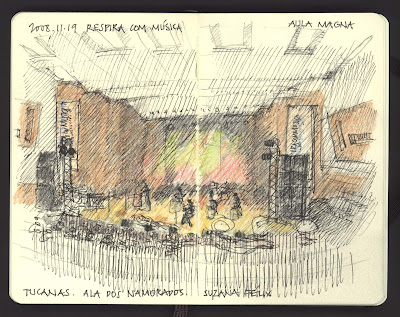 2008.11.19 RESPIRA COM MÚSICA AULA MAGNA
TUCANAS. ALA DOS NAMORADOS. SUZANA FÉLIX